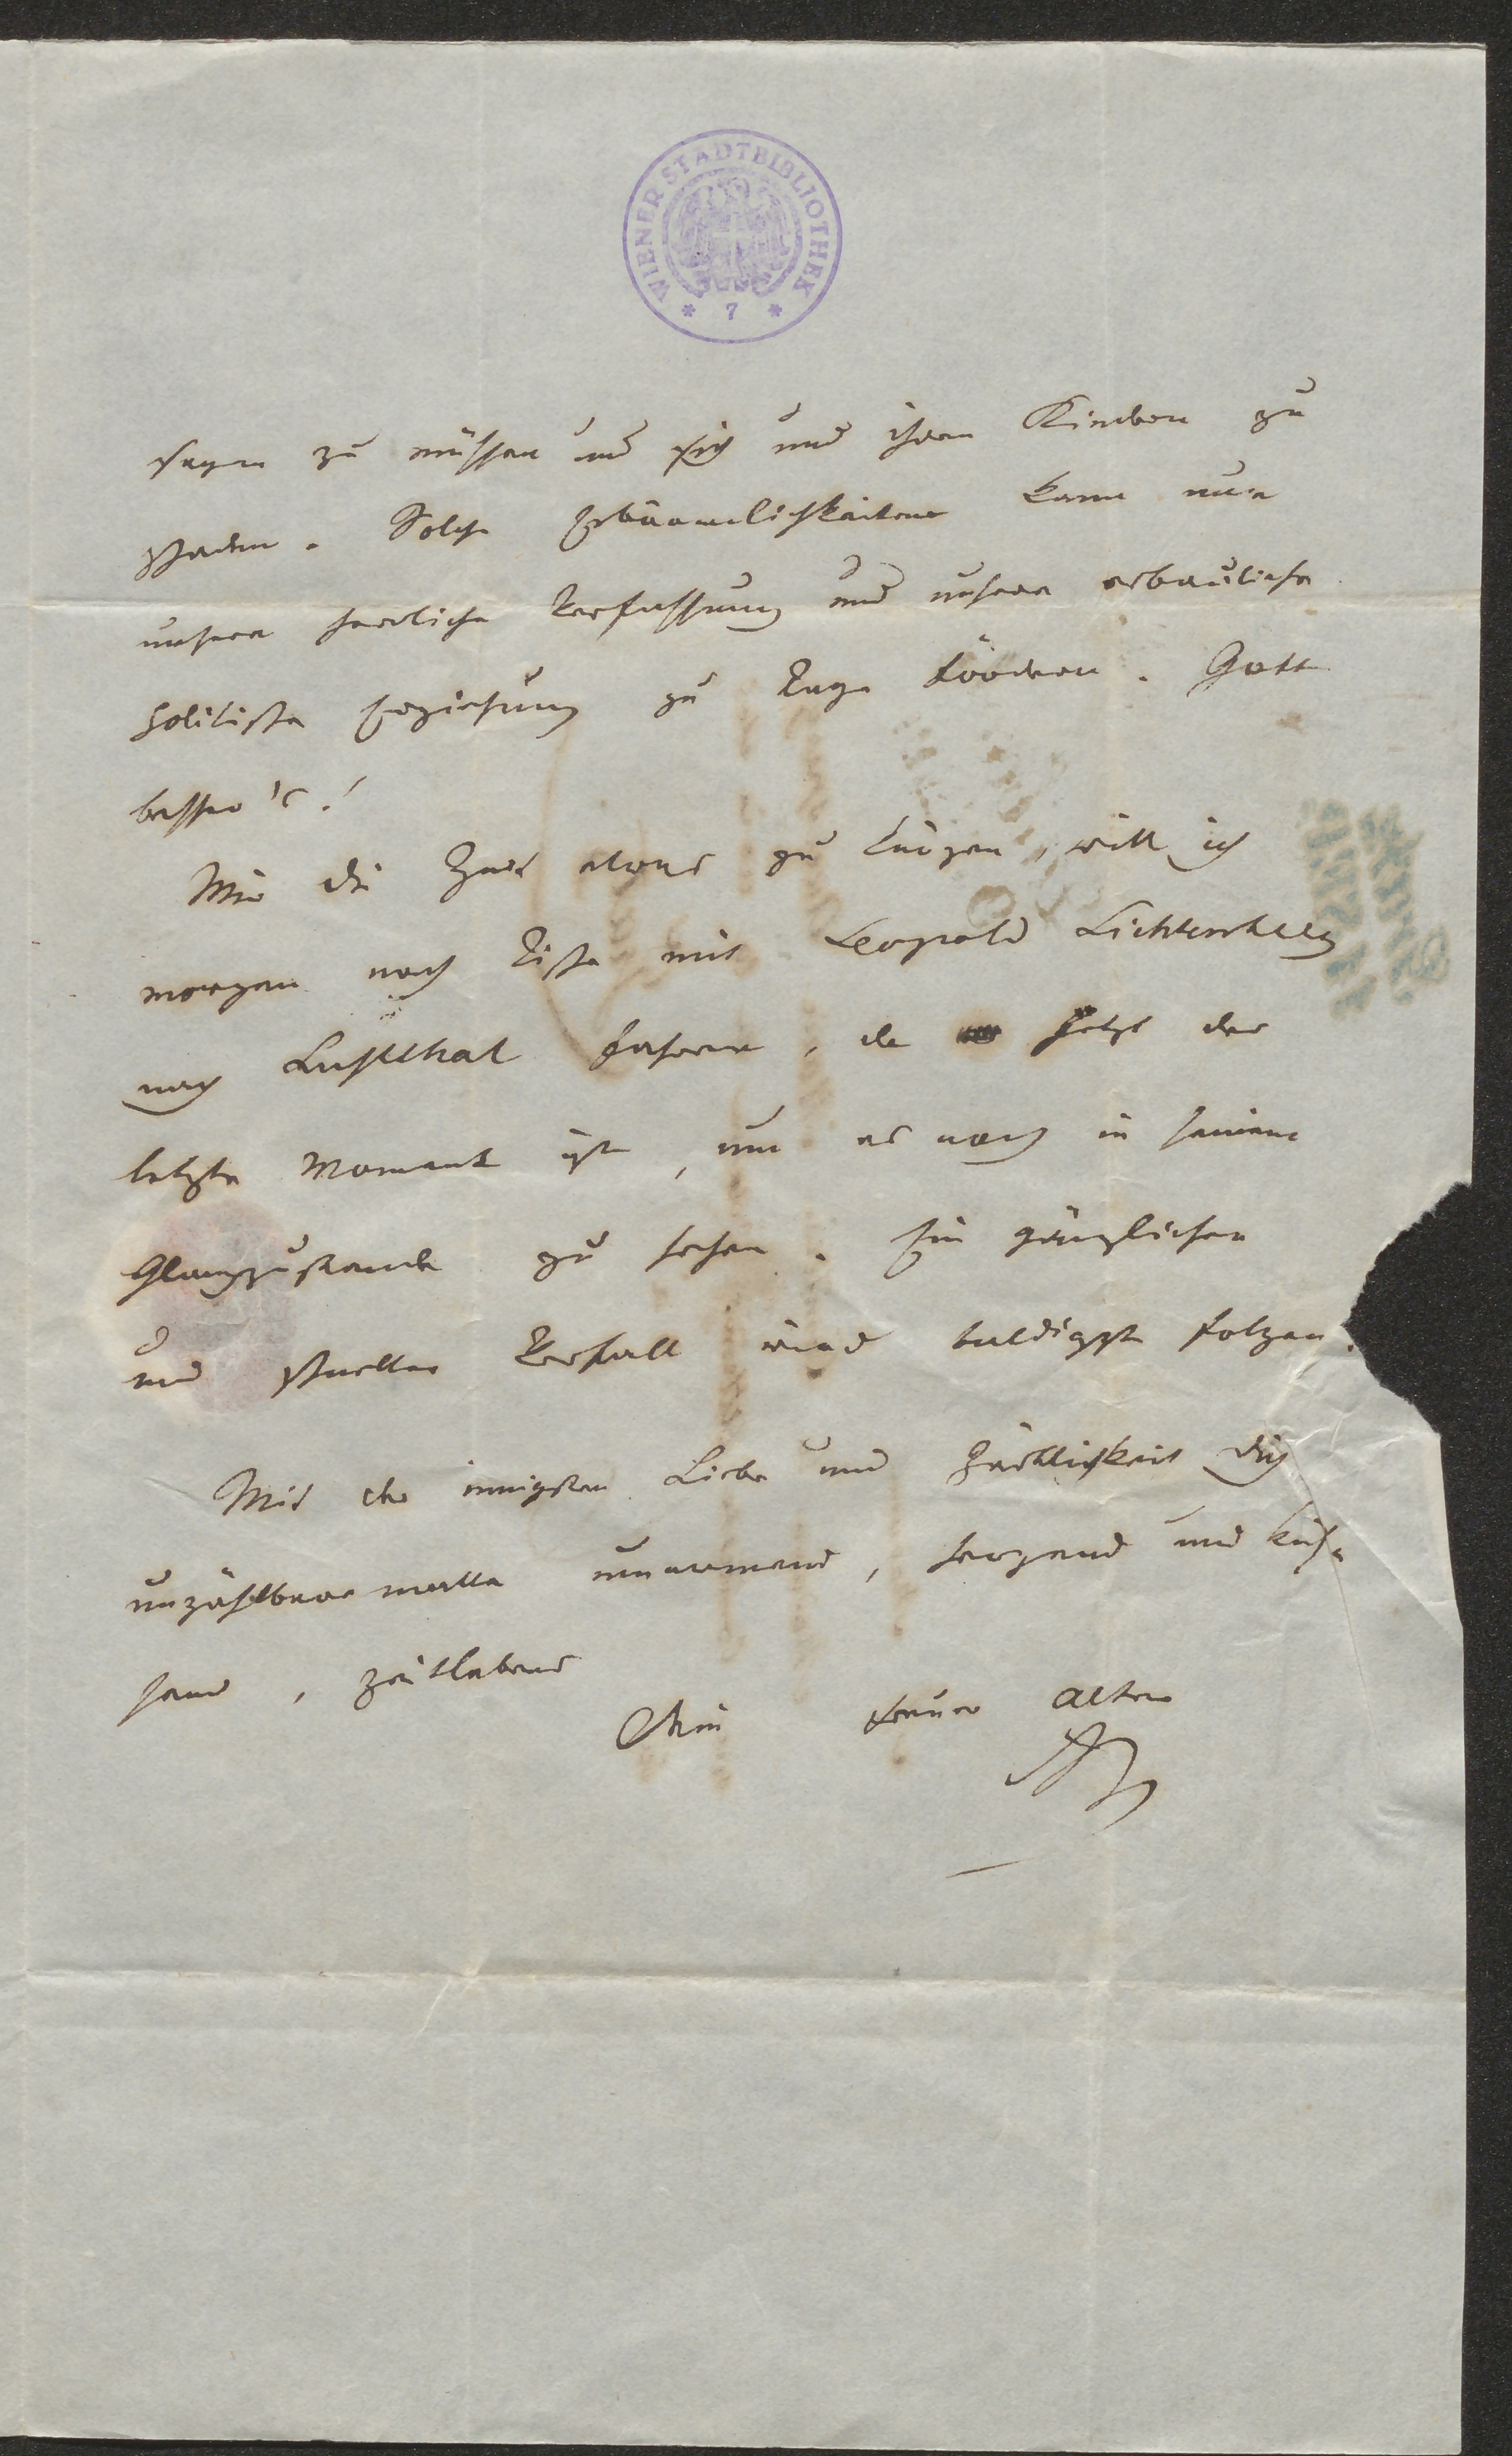 WIENER STADTBIBLIOTHEK
* 7 *
sagen zu müssen und sich und ihren Kindern zu
schaden. Solche Erbärmlichkeiten kann nur
unsere herrliche Verfassung und unsere erbauliche
politische Erziehung zu Tage fördern. Gott
besser's!
Mir die Zeit etwas zu kürzen, will ich
morgen nach Tische mit Leopold Lichtenberg
nach Lustthal fahren, da jetzt der
letzte Moment ist, um es noch in seinem
Glanzzustande zu sehen. Ein gänzlicher
und schneller Verfall wird baldigst folgen.
Mit der innigsten Liebe und Zärtlichkeit Dich
unzählbaremalle umarmend, herzend und küs-
send, zeitlebens
Dein treuer alter